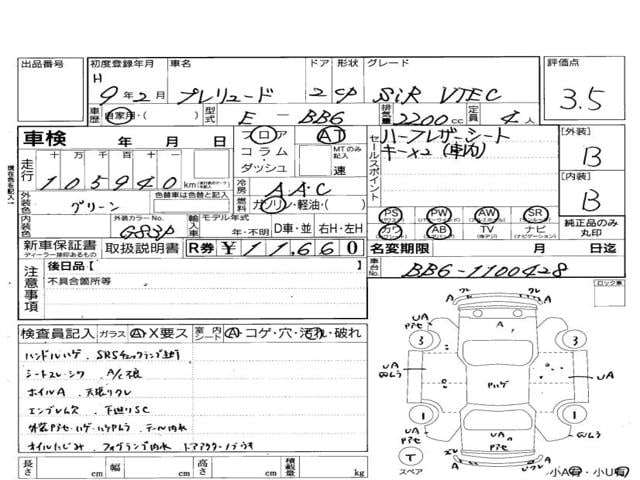 出品番号 初度登録年月 車名 ドア 形状 グレード 評価点
H 9年2月 プレリュード 2 CP SiR VTEC 3.5
車歴 自家用・( ) 型式 E-BB6 排気量 2200cc 定員 4人
車検 年 月 日 フロア AT ハーフレザーシート [外装]
走行 十万 万 千 百 十 一 コラム MTのみ記入 キー×2(車内) B
105940km ダッシュ 速 セールスポイント [内装]
冷房 AAC B
外装色 グリーン 色替車は色替と記入 燃料 ガソリン・軽油・( )
PS PW AW SR
内装色 外装カラーNo. G83P 輸入車 モデル年式 年・不明 D車・並 右H・左H カワ AB TV ナビ 純正品のみ丸印
新車保証書 取扱説明書 R券 ¥11,660 名変期限 月 日迄
ディーラー捺印あるもの
車台No. BB6-1100428
注意事項 後日品[ ] ロック車
不具合箇所等
検査員記入 ガラス A・X要ス 室内シート A・コゲ・穴・汚れ・破れ
ハンドルハゲ . SRSチェックランプ点灯
シートスレ・シワ A/C不良
ホイルA . 天張リクレ
エンブレム欠 . 下廻リSC
テール内水
オイルにじみ . フォグランプ内水
長さ cm 幅 cm 高さ cm 積載量 kg
クレ
A
3 3
UA
Pハゲ
1 1
UA
T
スペア
小A有・小U有